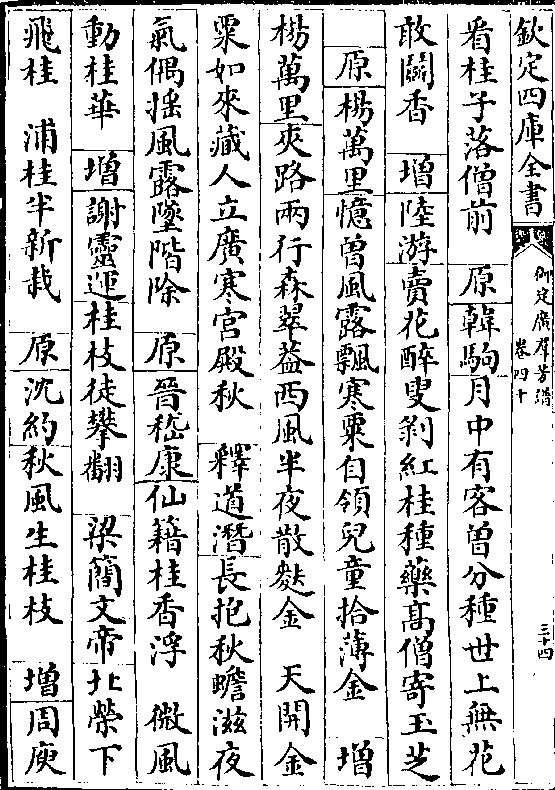 欽定四庫全書
御定廣群芳譜
卷四十
三十四
看桂子落僧前　原韓駒月中有客曾分種世上無花
敢鬭香　增陸游賣花醉叟剝紅桂種藥高僧寄玉芝
原楊萬里憶曾風露飄寒粟自領兒童拾薄金　增
楊萬里夾路兩行森翠葢西風半夜散麩金　天開金
粟如來藏人立廣寒宮殿秋　釋道潛長抱秋蟾滋夜
氣偶揺風露墜階除　原晉嵇康仙籍桂香浮　微風
動桂華　增謝靈運桂枝徒攀翻　梁簡文帝北榮下
飛桂　浦桂半新栽　原沈約秋風生桂枝　增周庾